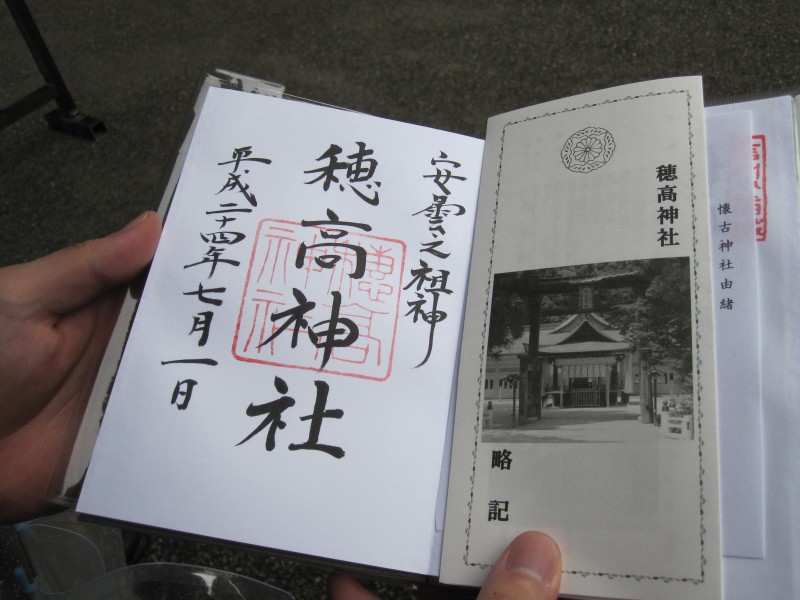 安曇之祖神
穂高神社
穂高神社
平成二十四年七月一日
穂高神社
略記
懐古神社由緒